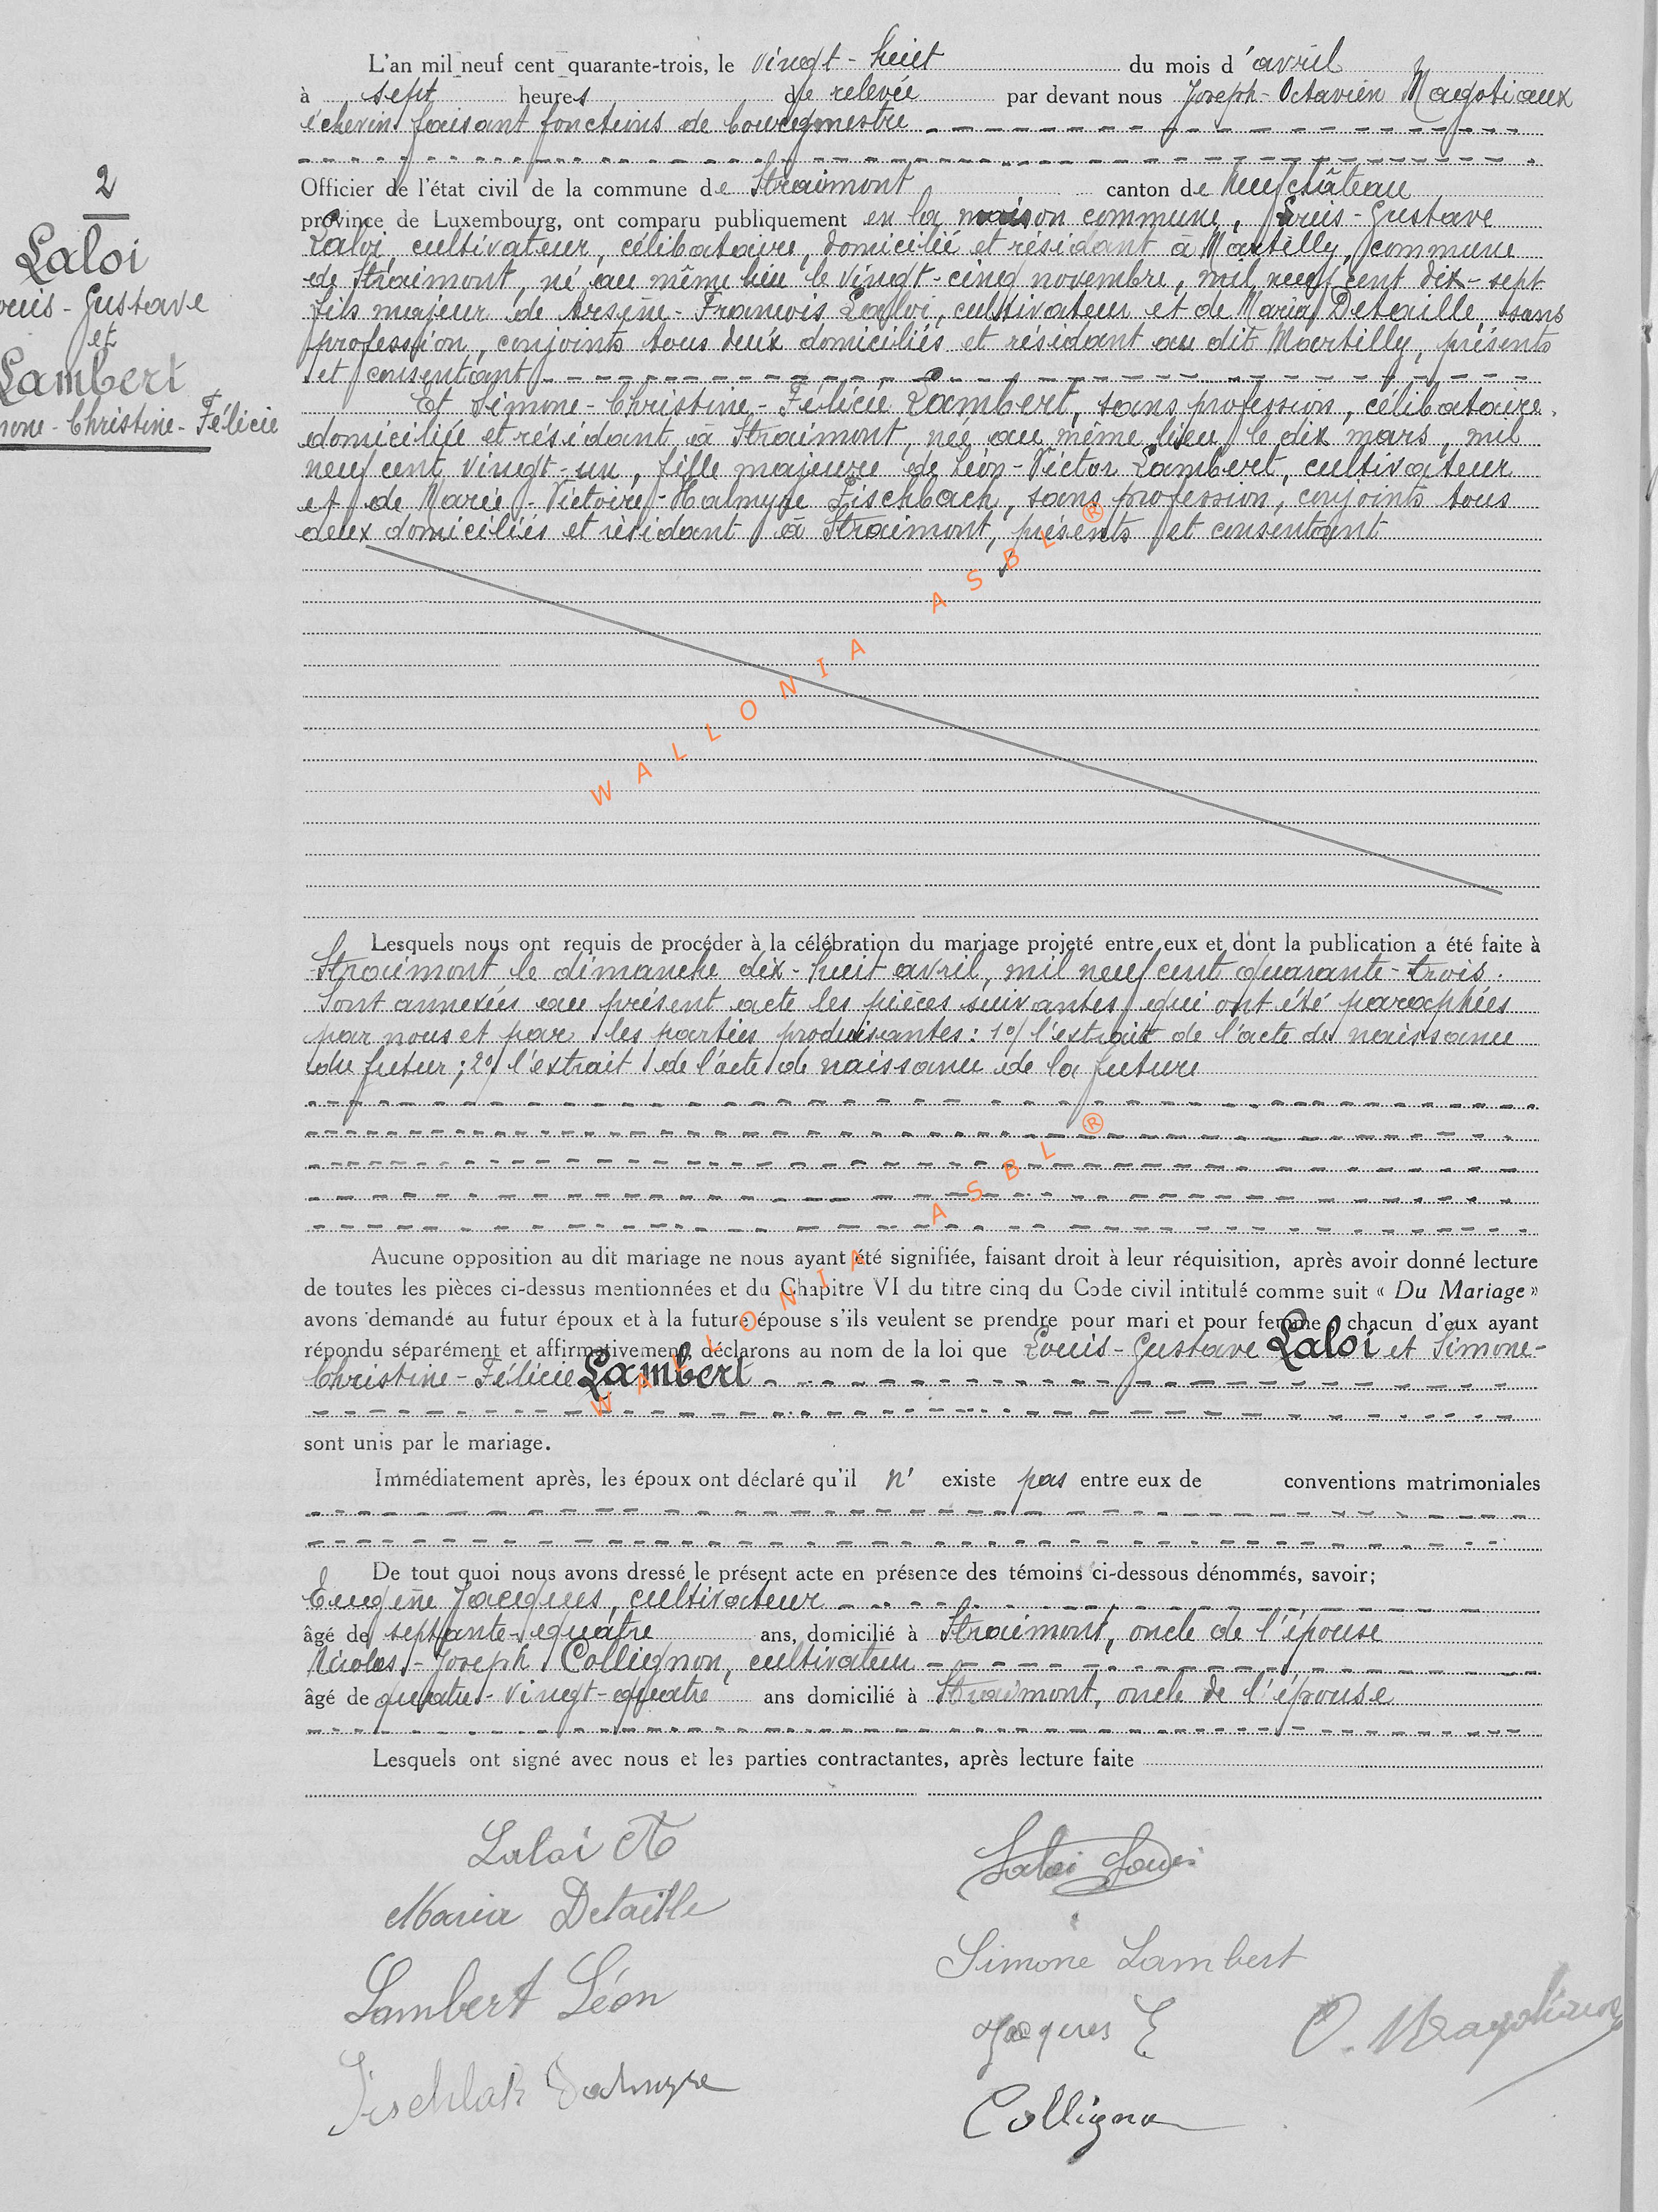 L'an mil neuf cent quarante-trois, le vingt-huit du mois d'avril
à sept heures de relevée par devant nous Joseph-Octavien Magotiaux
échevin faisant fonctions de bourgmestre
Officier de l'état civil de la commune de Straimont canton de Neufchâteau
province de Luxembourg, ont comparu publiquement en la maison commune, Louis-Gustave
Laloi, cultivateur, célibataire, domicilié et résidant à Martilly, commune
de Straimont, né au même lieu le vingt-cinq novembre, mil neuf cent dix-sept
fils majeur de Arsène-François Laloi, cultivateur et de Maria Detaille, sans
profession, conjoints tous deux domiciliés et résidant au dit Martilly, présents
et consentant
Et Simone-Christine-Félicie Lambert, sans profession, célibataire,
domiciliée et résidant à Straimont, née au même lieu le dix mars, mil
neuf cent vingt-un, fille majeure de Léon-Victor Lambert, cultivateur
et de Marie-Victoire-Dalmyre Fischbach, sans profession, conjoints tous
deux domiciliés et résidant à Straimont, présents et consentant
2
Laloi
ouis-Gustave
et
Lambert
mone-Christine-Félicie
WALLONIA ASBL ®
Lesquels nous ont requis de procéder à la célébration du mariage projeté entre eux et dont la publication a été faite à
Straimont le dimanche dix-huit avril, mil neuf cent quarante-trois.
Sont annexées au présent acte les pièces suivantes qui ont été paraphées
par nous et par les parties produisantes: 1o/ l'extrait de l'acte de naissance
du futur; 2o/ l'extrait de l'acte de naissance de la future
WALLONIA ASBL ®
Aucune opposition au dit mariage ne nous ayant été signifiée, faisant droit à leur réquisition, après avoir donné lecture
de toutes les pièces ci-dessus mentionnées et du Chapitre VI du titre cinq du Code civil intitulé comme suit « Du Mariage »
avons demandé au futur époux et à la future épouse s'ils veulent se prendre pour mari et pour femme chacun d'eux ayant
répondu séparément et affirmativement, déclarons au nom de la loi que Louis-Gustave Laloi et Simone-
Christine-Félicie Lambert
sont unis par le mariage.
Immédiatement après, les époux ont déclaré qu'il n' existe pas entre eux de conventions matrimoniales
De tout quoi nous avons dressé le présent acte en présence des témoins ci-dessous dénommés, savoir;
Eugène Jacques, cultivateur
âgé de septante-quatre ans, domicilié à Straimont, oncle de l'épouse
Nicolas-Joseph Collignon, cultivateur
âgé de quatre-vingt-quatre ans domicilié à Straimont, oncle de l'épouse
Lesquels ont signé avec nous et les parties contractantes, après lecture faite
Laloi A
Laloi Louis
Maria Detaille
Simone Lambert
Lambert Léon
Jacques E
O. Magotiaux
Fischbach Dalmyre
Collignon